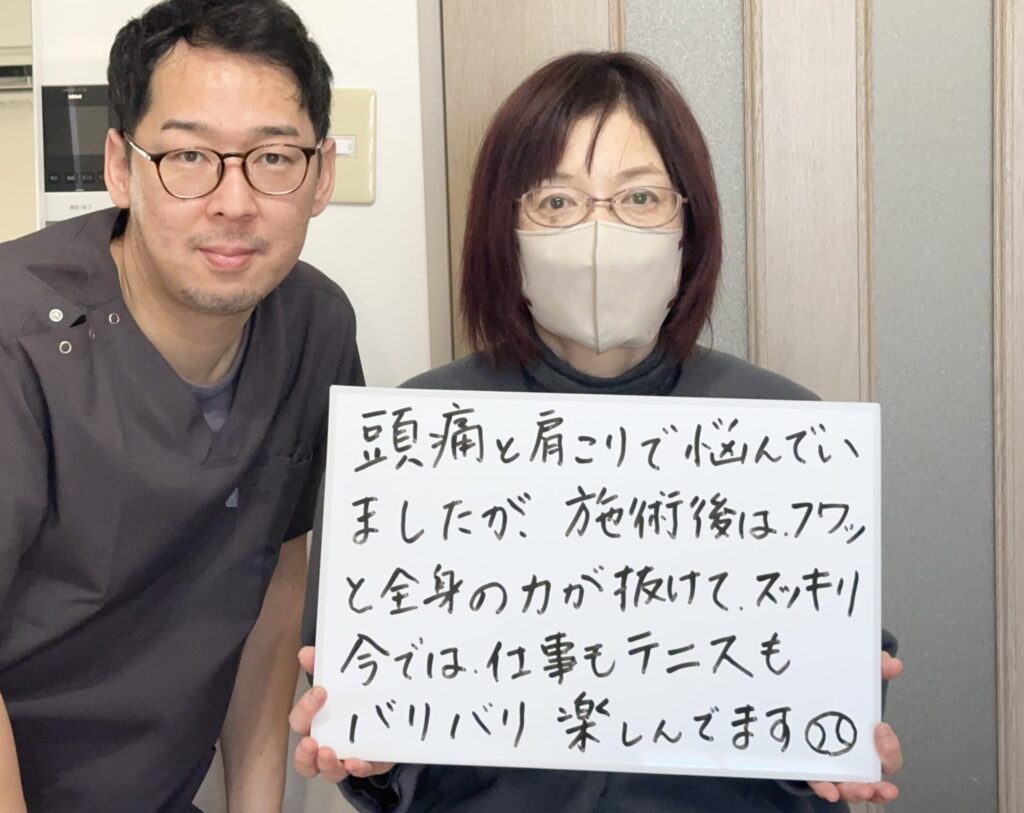 頭痛と肩こりで悩んでい
ましたが、施術後は、フワッ
と全身の力が抜けて、スッキリ
今では、仕事もテニスも
バリバリ楽しんでます